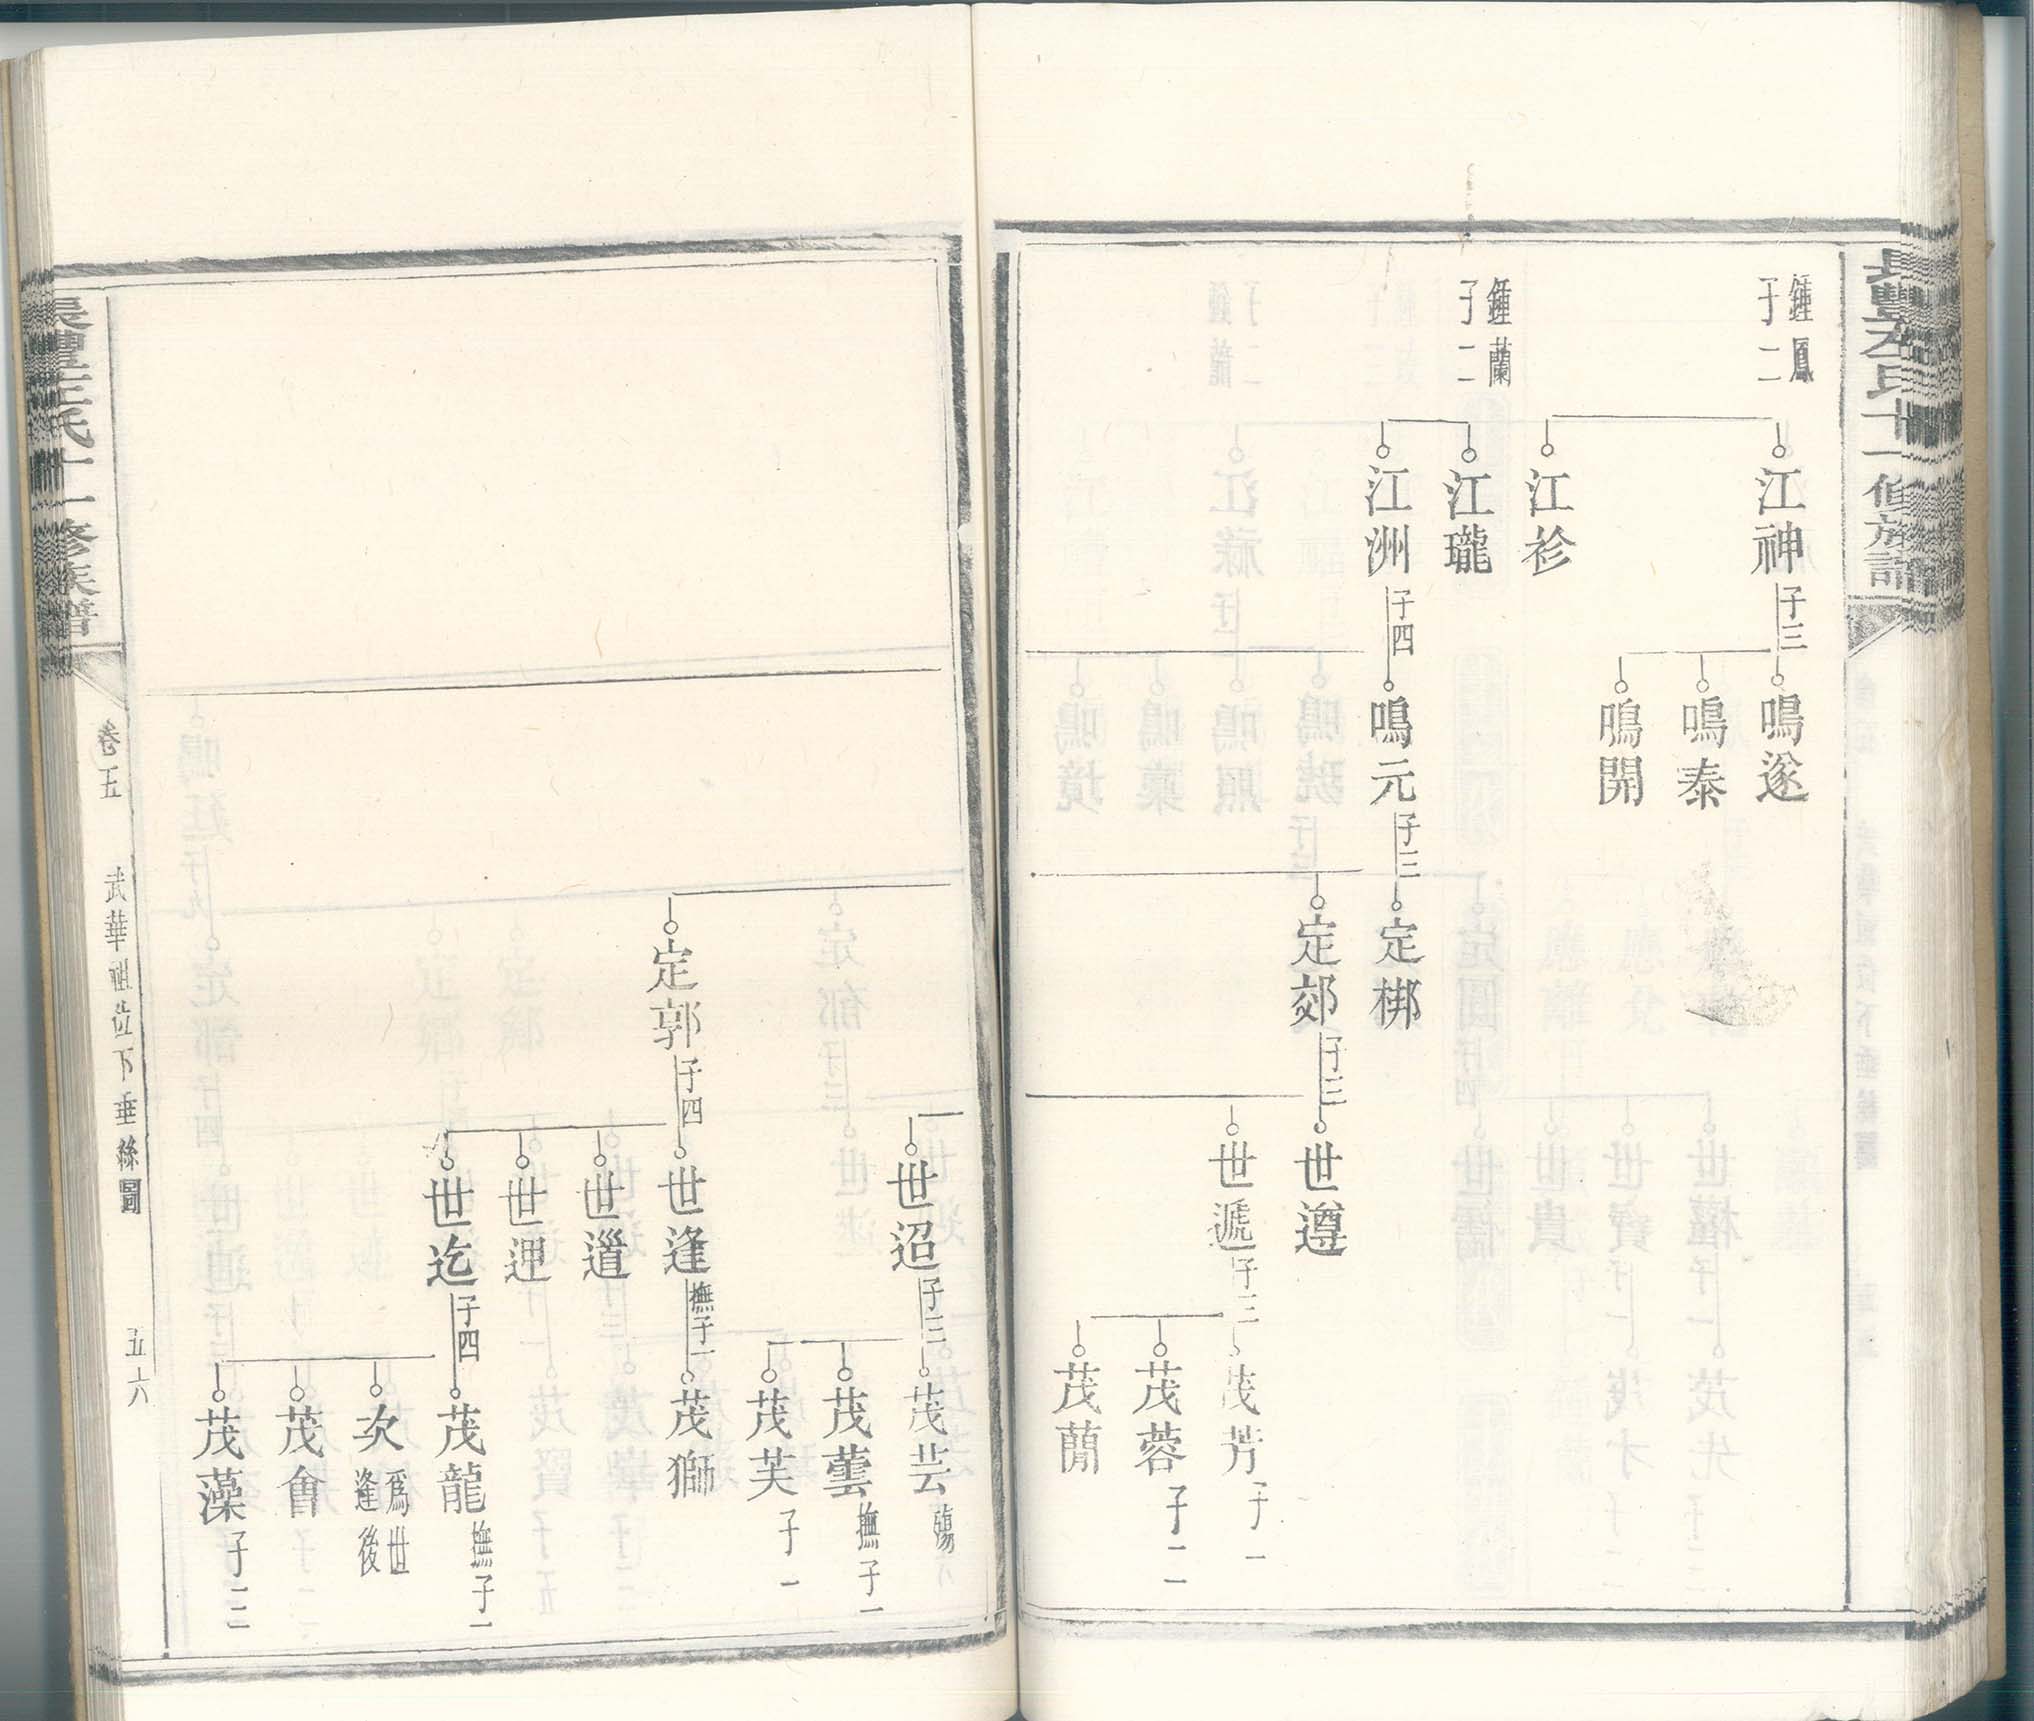 長豐左氏十一修族譜
鍾鳳
子二
江神
子三
鳴遂
鳴泰
鳴開
江袗
鍾蘭
子二
江瓏
江洲
子四
鳴元
子三
定梆
定郊
子三
世遵
世遞
子三
茂芳
子一
茂蓉
子二
茂蕳
世迢
子三
茂芸
殤
茂蕓
撫子一
茂芙
子一
定郭
子四
世逢
撫子一
茂獅
世道
世理
世迄
子四
茂龍
撫子一
次
爲世
逢後
茂會
茂藻
子二
長豐左氏十一修族譜
卷五
武華祖位下垂絲圖
五六